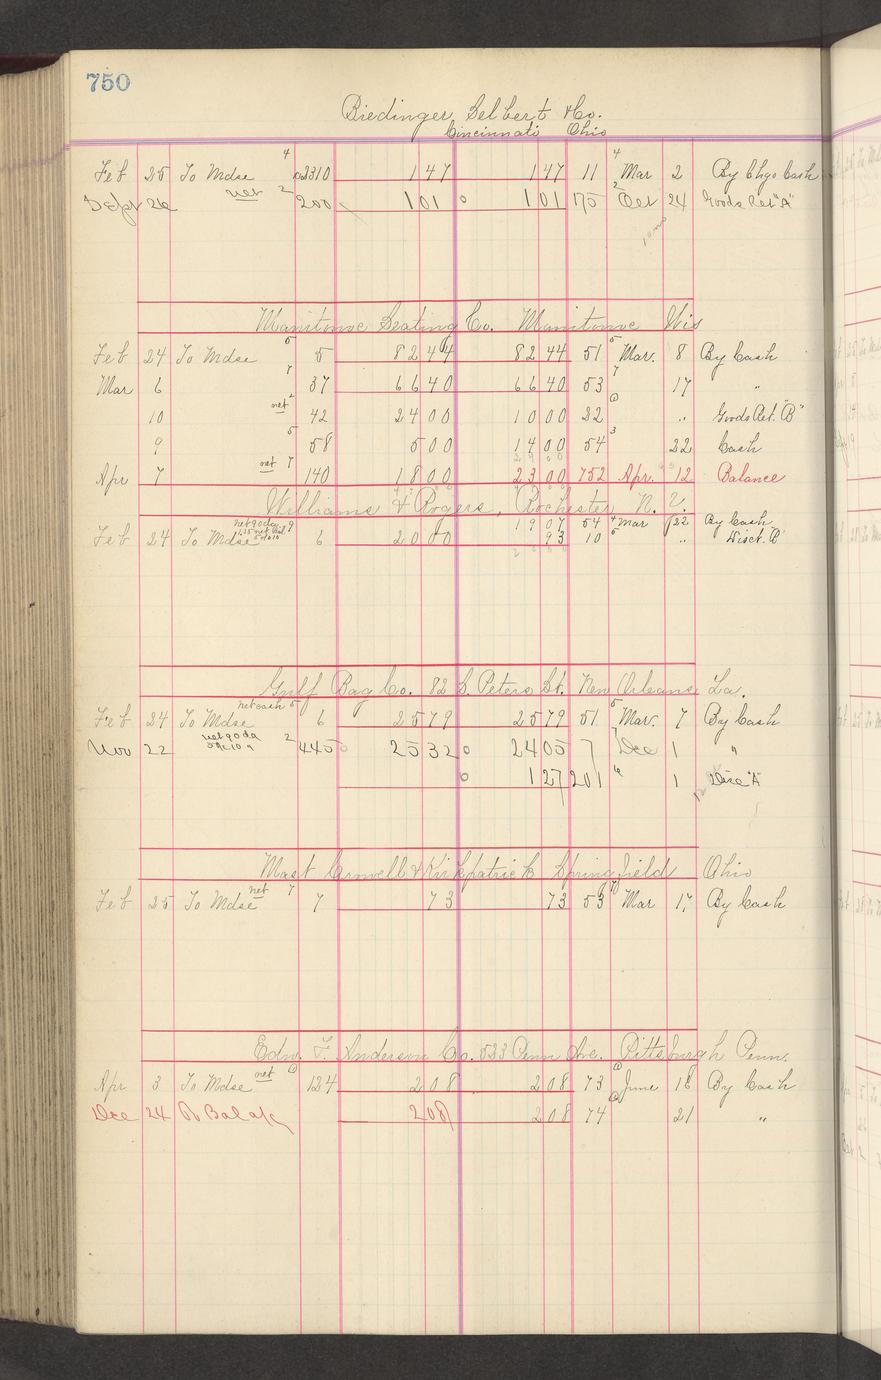 750
Biedinger, Selbert & Co.
Cincinnati Ohio
Feb 25 To Mdse 4 2310 1 47 1 47 11 4 Mar 2 By Chgo Cash
Sept 26 net 2 200 1 01 0 1 01 175 2 Oct 24 Goods Ret "A"
Manitowoc Seating Co. Manitowoc Wis
Feb 24 To Mdse 5 5 82 44 82 44 51 5 Mar. 8 By Cash
Mar 6 7 37 66 40 66 40 53 7 17 "
10 net 2 42 24 00 10 00 22 " Goods Ret. "B"
9 5 58 5 00 14 00 54 3 22 Cash
Apr 7 net 7 140 18 00 23 00 752 Apr. 12 Balance
Williams & Rogers, Rochester N. Y.
19 07 54 4 Mar 22 By Cash
Feb 24 To Mdse 9 6 20 00 93 10 " Disct.
Gulf Bag Co. 82 S. Peters St. New Orleans La.
Feb 24 To Mdse net cash 5 6 25 79 25 79 51 5 Mar. 7 By Cash
Nov 22 net 90 da 2 445 25 32 0 24 05 7 Dec 1 "
0 1 27 201 " 1 Disc "A"
Mast Crowell & Kirkpatrick Springfield Ohio
Feb 25 To Mdse net 7 7 73 73 53 Mar 17 By Cash
Edw. F. Anderson Co. 523 Penn Ave. Pittsburgh Penn.
Apr 3 To Mdse net 124 2 08 2 08 73 June 18 By Cash
Dec 24 2 08 2 08 74 21 "